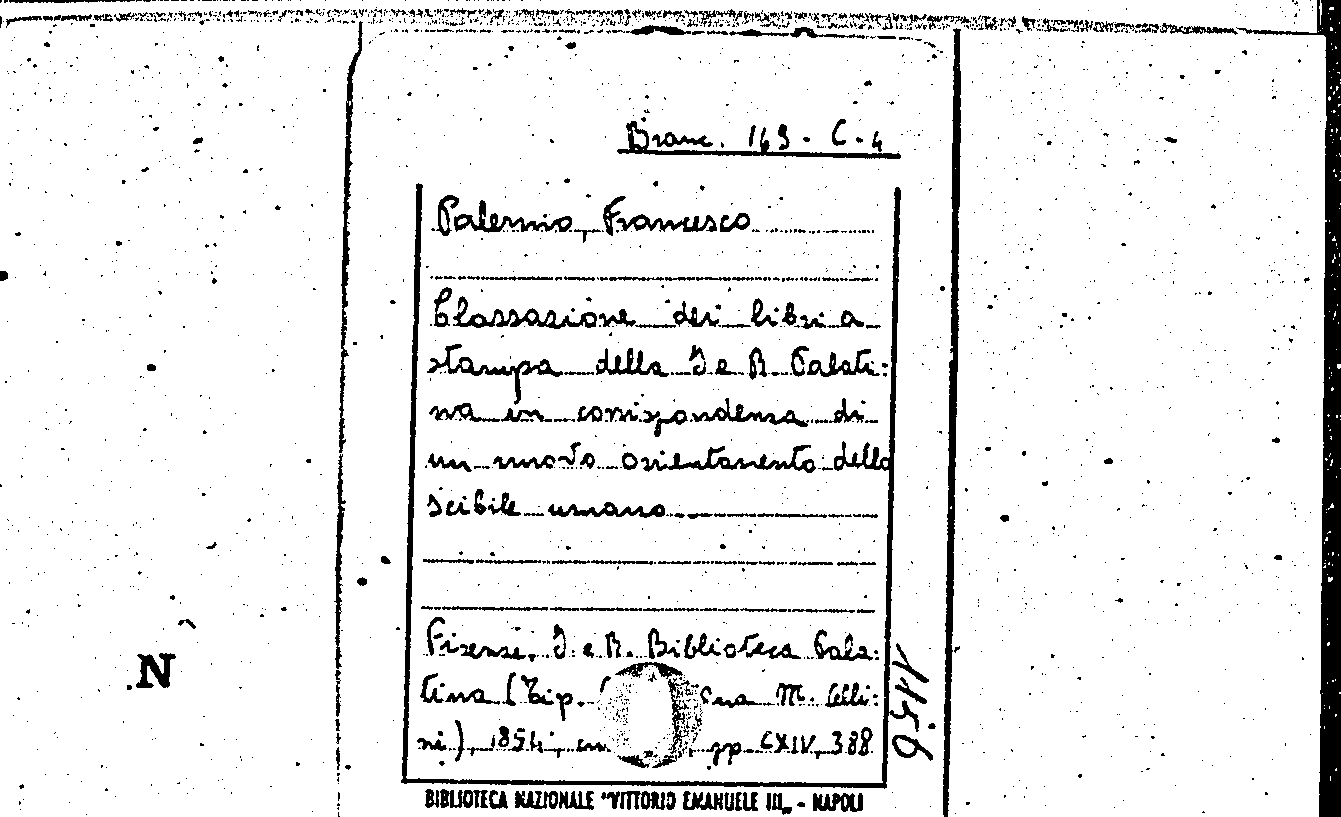 Branc. 163 - C - 4
Palermo, Francesco
Classazione dei libri a
stampa della I e R. Palati:
na in corrispondenza di
un nuovo orientamento dello
scibile umano
Firenze, I. e R. Biblioteca Pala:
tina (Tip. M. Celli:
ni), 1854, pp. CXIV, 388
1156
N
BIBLIOTECA NAZIONALE "VITTORIO EMANUELE III„ - NAPOLI